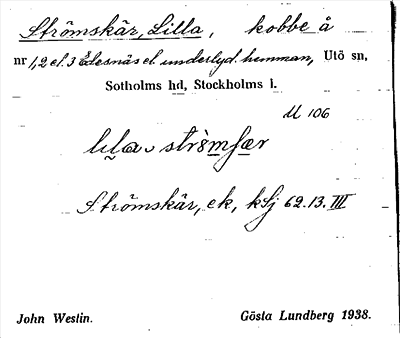 Strömskär, Lilla, kobbe å
nr 1,2 el. 3 Edesnäs el. underlyd. hemman, Utö sn,
Sotholms hd, Stockholms l.
U 106
Strömskär, ek, ksj 62.13. III
John Westin. Gösta Lundberg 1938.